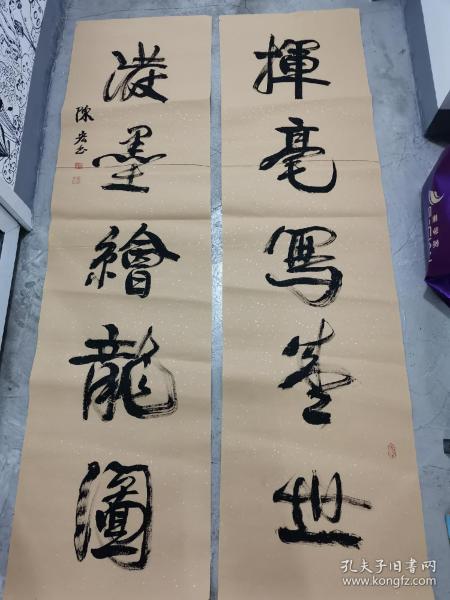 揮毫寫盛世
潑墨繪龍圖
孔夫子旧书网
www.kongfz.com